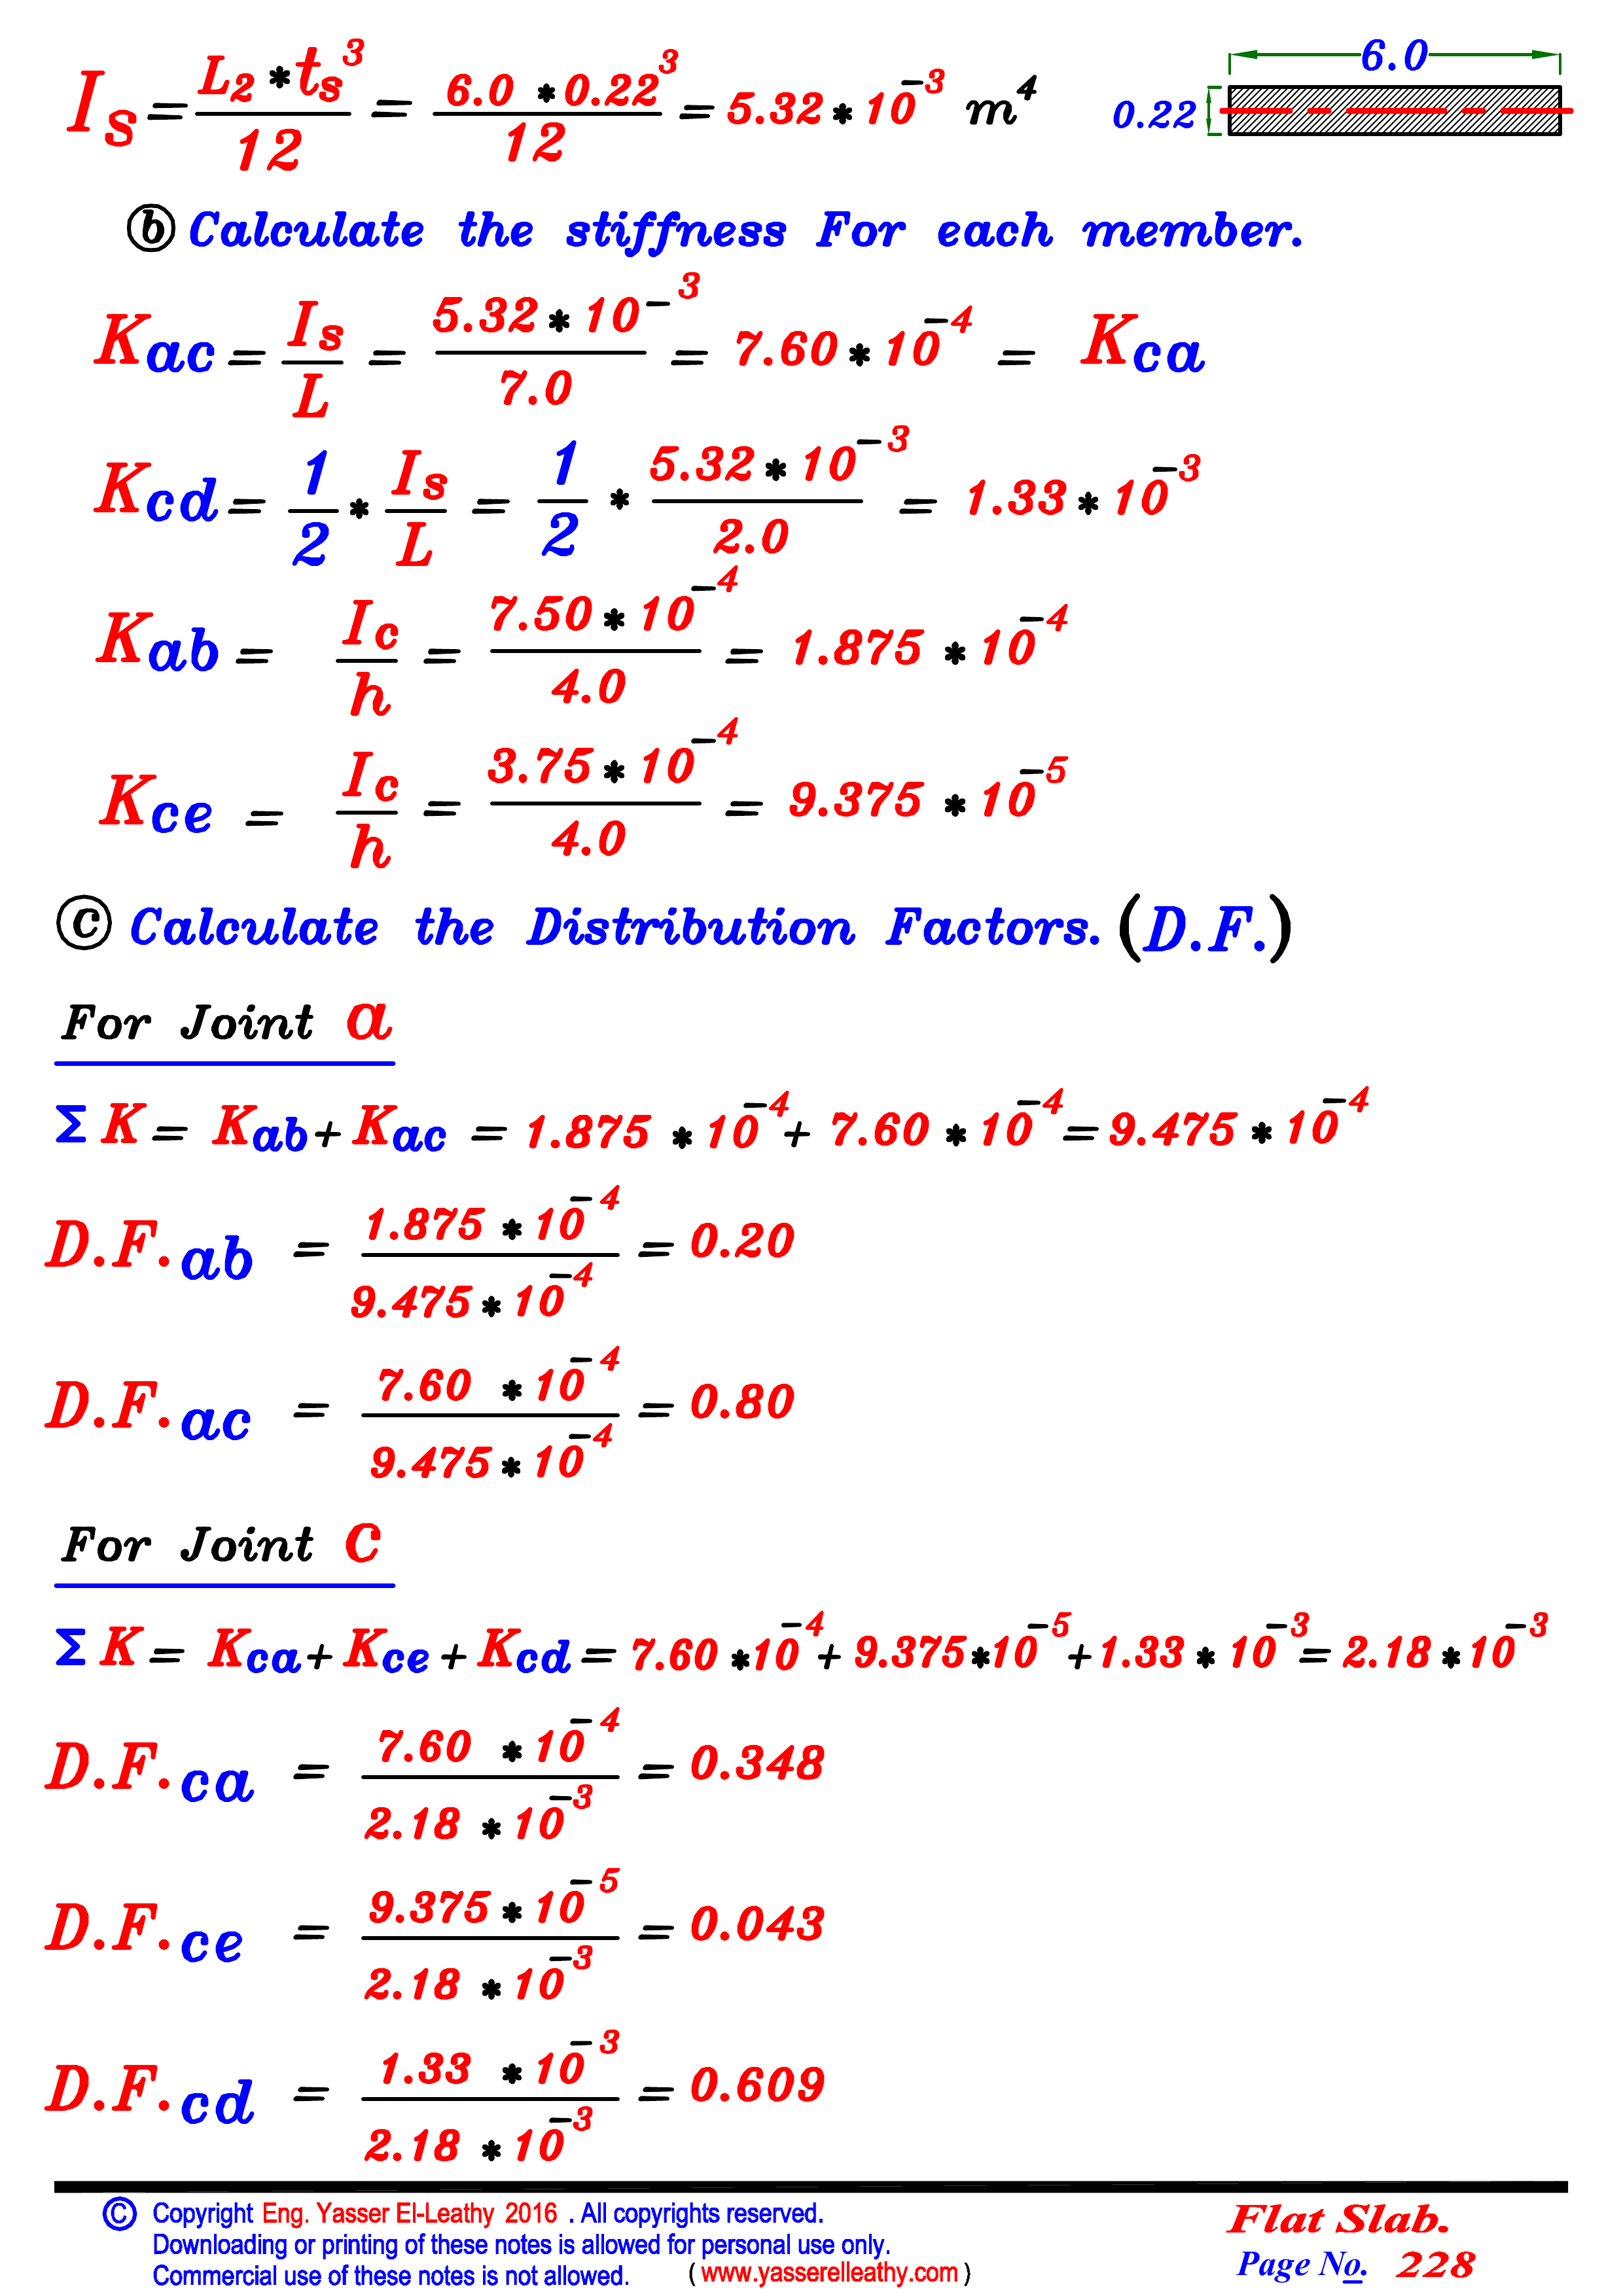 Is = L2 * ts^3 / 12 = 6.0 * 0.22^3 / 12 = 5.32 * 10^-3 m^4
6.0
0.22
b Calculate the stiffness For each member.
Kac = Is / L = 5.32 * 10^-3 / 7.0 = 7.60 * 10^-4 = Kca
Kcd = 1/2 * Is / L = 1/2 * 5.32 * 10^-3 / 2.0 = 1.33 * 10^-3
Kab = Ic / h = 7.50 * 10^-4 / 4.0 = 1.875 * 10^-4
Kce = Ic / h = 3.75 * 10^-4 / 4.0 = 9.375 * 10^-5
c Calculate the Distribution Factors. (D.F.)
For Joint a
Σ K = Kab + Kac = 1.875 * 10^-4 + 7.60 * 10^-4 = 9.475 * 10^-4
D.F.ab = 1.875 * 10^-4 / 9.475 * 10^-4 = 0.20
D.F.ac = 7.60 * 10^-4 / 9.475 * 10^-4 = 0.80
For Joint c
Σ K = Kca + Kce + Kcd = 7.60 * 10^-4 + 9.375 * 10^-5 + 1.33 * 10^-3 = 2.18 * 10^-3
D.F.ca = 7.60 * 10^-4 / 2.18 * 10^-3 = 0.348
D.F.ce = 9.375 * 10^-5 / 2.18 * 10^-3 = 0.043
D.F.cd = 1.33 * 10^-3 / 2.18 * 10^-3 = 0.609
© Copyright Eng. Yasser El-Leathy 2016 . All copyrights reserved.
Downloading or printing of these notes is allowed for personal use only.
Commercial use of these notes is not allowed. ( www.yasserelleathy.com )
Flat Slab.
Page No. 228